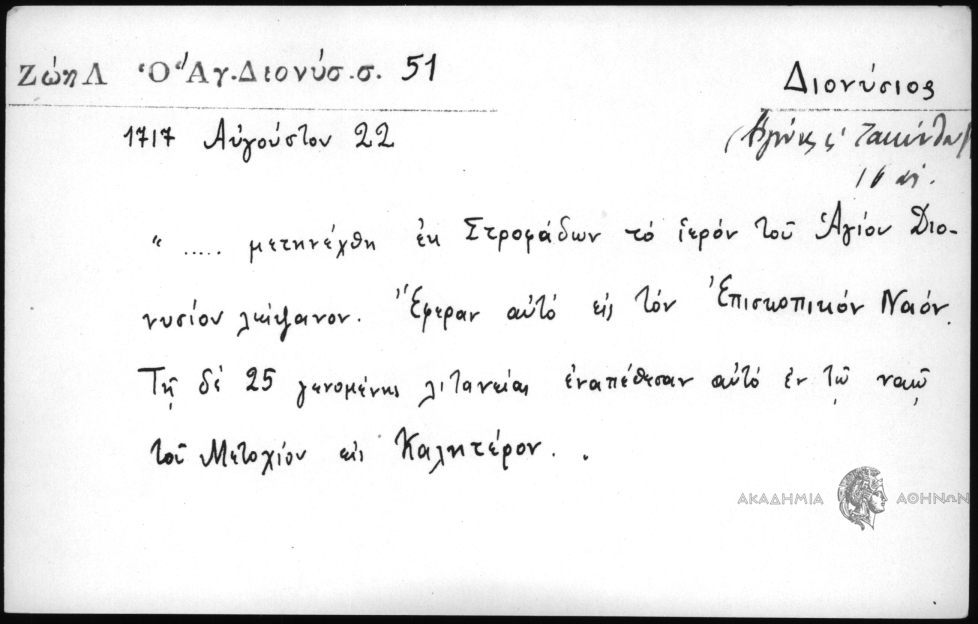 Ζώη Λ Ὁ Ἅγ. Διονύσ. σ. 51
Διονύσιος
1717 Αὐγούστου 22
16 αἰ.
"..... μετηνέχθη ἐκ Στροφάδων τό ἱερόν τοῦ Ἁγίου Διο-
νυσίου λείψανον. Ἔφεραν αὐτό εἰς τόν Ἐπισκοπικόν Ναόν.
Τῇ δέ 25 γενομένης λιτανείας ἐναπέθεσαν αὐτό ἐν τῷ ναῷ
τοῦ Μετοχίου εἰς Καλητέρον. .
ΑΚΑΔΗΜΙΑ ΑΘΗΝΩΝ